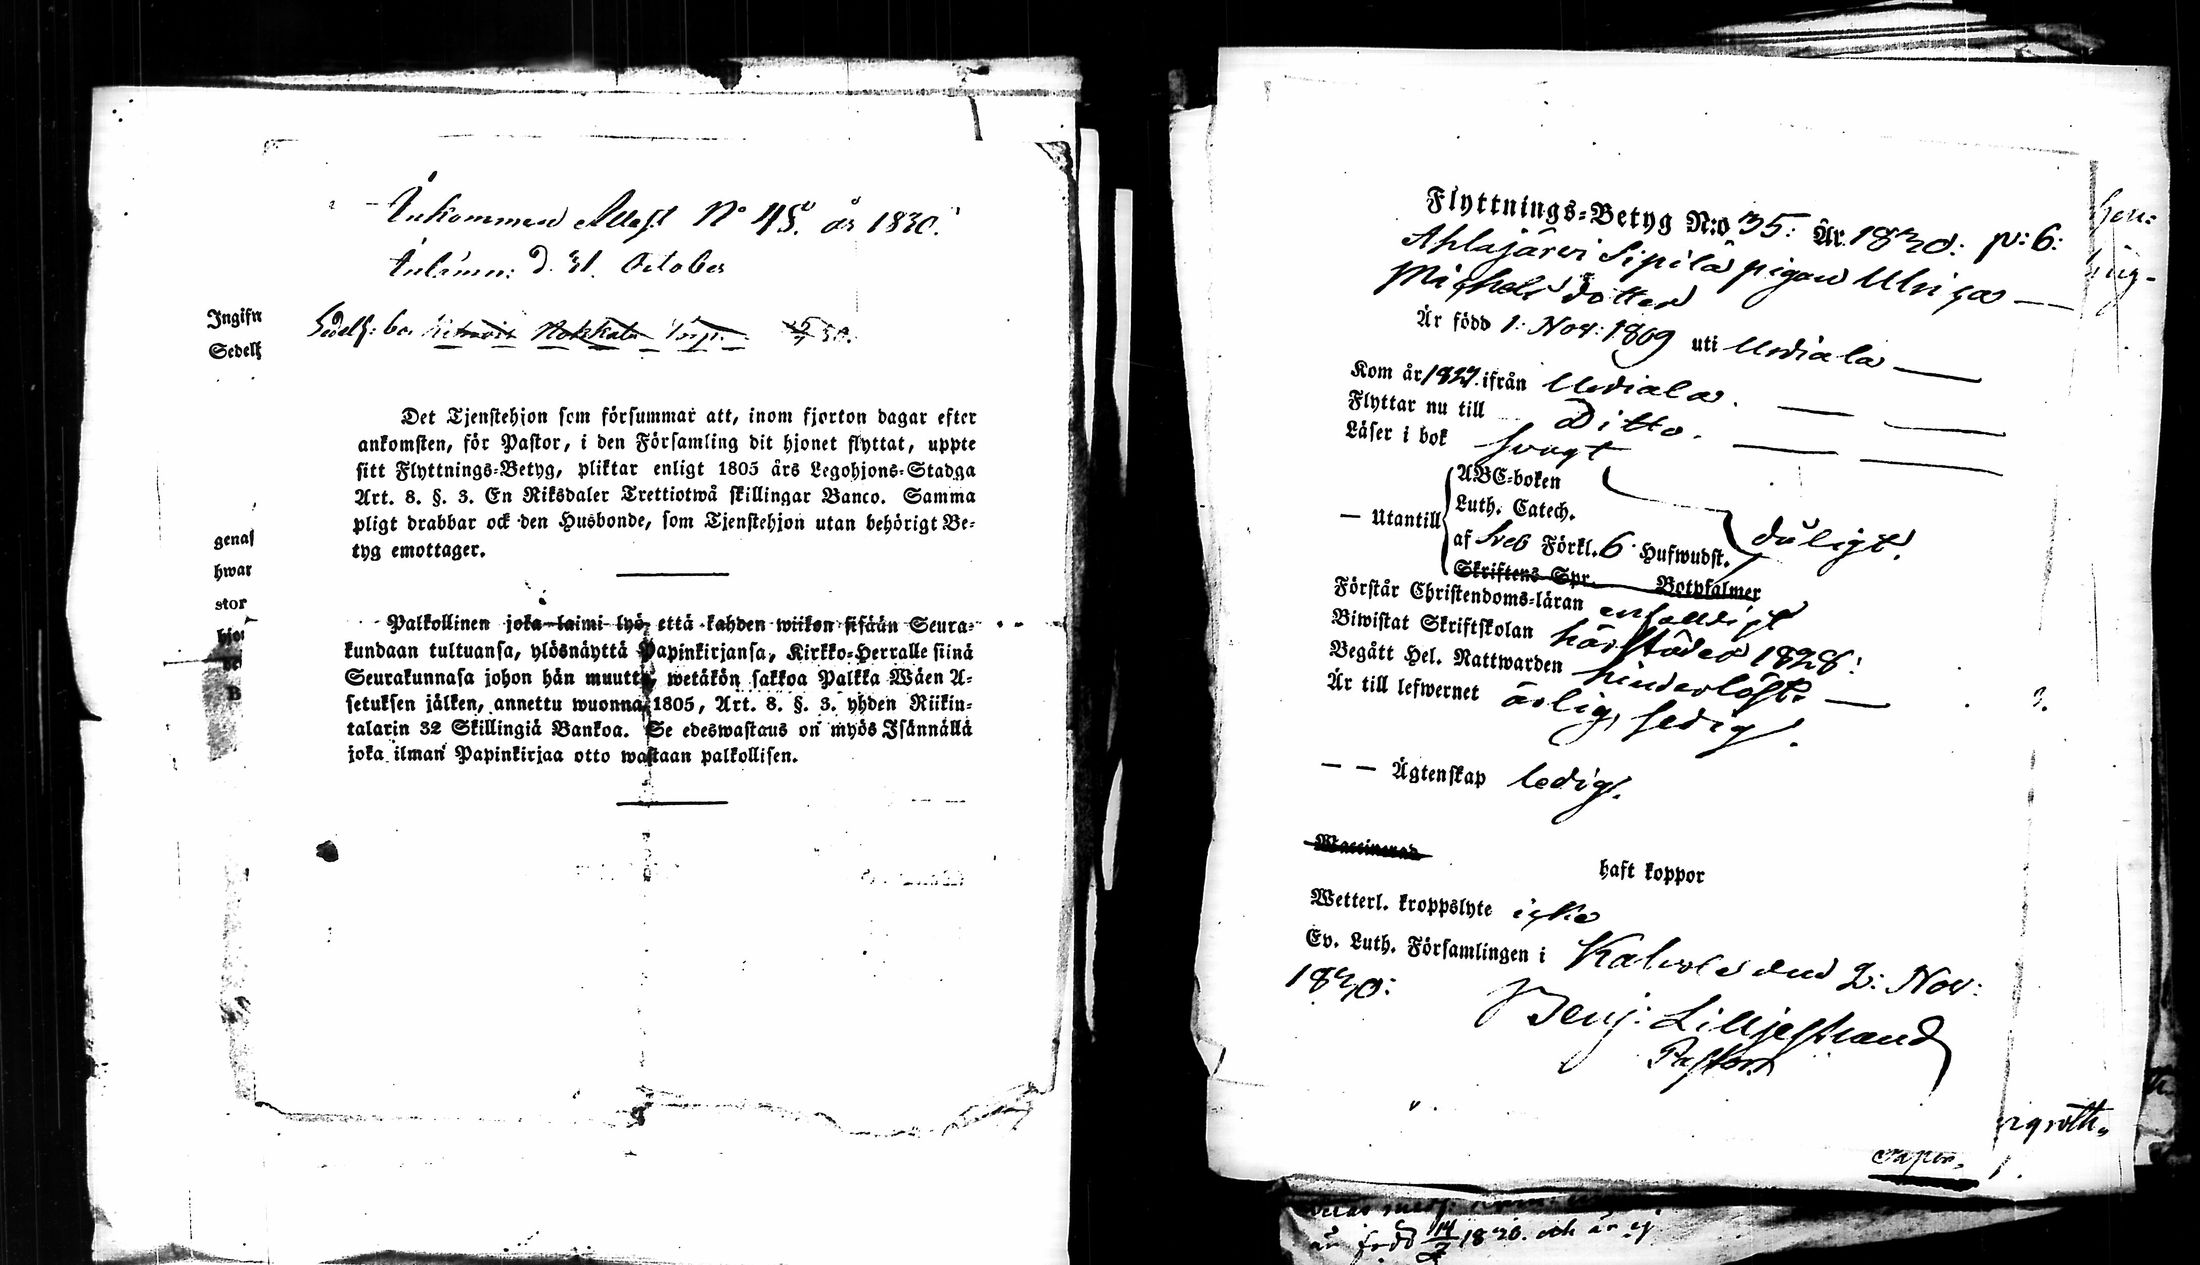 Inkommen Attest No 45. år 1830.
Inlämn: d. 31. October
Ingifn
Sedelh
Sedelh: 30.
Det Tjenstehjon som försummar att, inom fjorton dagar efter
ankomsten, för Pastor, i den Församling dit hjonet flyttat, uppte
sitt Flyttnings-Betyg, pliktar enligt 1805 års Legohjons-Stadga
Art. 8. §. 3. En Riksdaler Trettiotwå skillingar Banco. Samma
pligt drabbar ock den Husbonde, som Tjenstehjon utan behörigt Be-
tyg emottager.
genas
hwar
stor
Palkollinen joka laimi lyö, että kahden wiikon sisään Seura-
kundaan tultuansa, ylösnäyttä Papinkirjansa, Kirkko-Herralle siinä
Seurakunnasa johon hän muutta, wetäkön sakkoa Palkka Wäen A-
setuksen jälken, annettu wuonna 1805, Art. 8. §. 3. yhden Riikin-
talarin 32 Skillingiä Bankoa. Se edeswastaus on myös Isännällä
joka ilman Papinkirjaa otto wastaan palkollisen.
Flyttnings-Betyg N:o 35: År 1830: p: 6:
Ahlajärvi Sipilä pigan Ulrica
Michelsdotter
Är född 1: Nov: 1809 uti Urdiala
Kom år 1827. ifrån Urdiala.
Flyttar nu till Ditto.
Läser i bok svagt
— Utantill
ABC-boken
Luth. Catech.
af Sveb Förkl. 6 Hufwudst. dåligt.
Skriftens Spr. Botpsalmer
Förstår Christendoms-läran enfaldigt
Biwistat Skriftskolan härstädes 1828:
Begått Hel. Nattwarden hinderlöst.
Är till lefwernet ärlig, sedig.
— — Ägtenskap ledig.
Waccinerad
haft koppor
Wetterl. kroppslyte icke
Ev. Luth. Församlingen i Kalvola den 2: Nov:
1830:
Benj: Lilljestrand
Pastor
är född 1820. och är ej